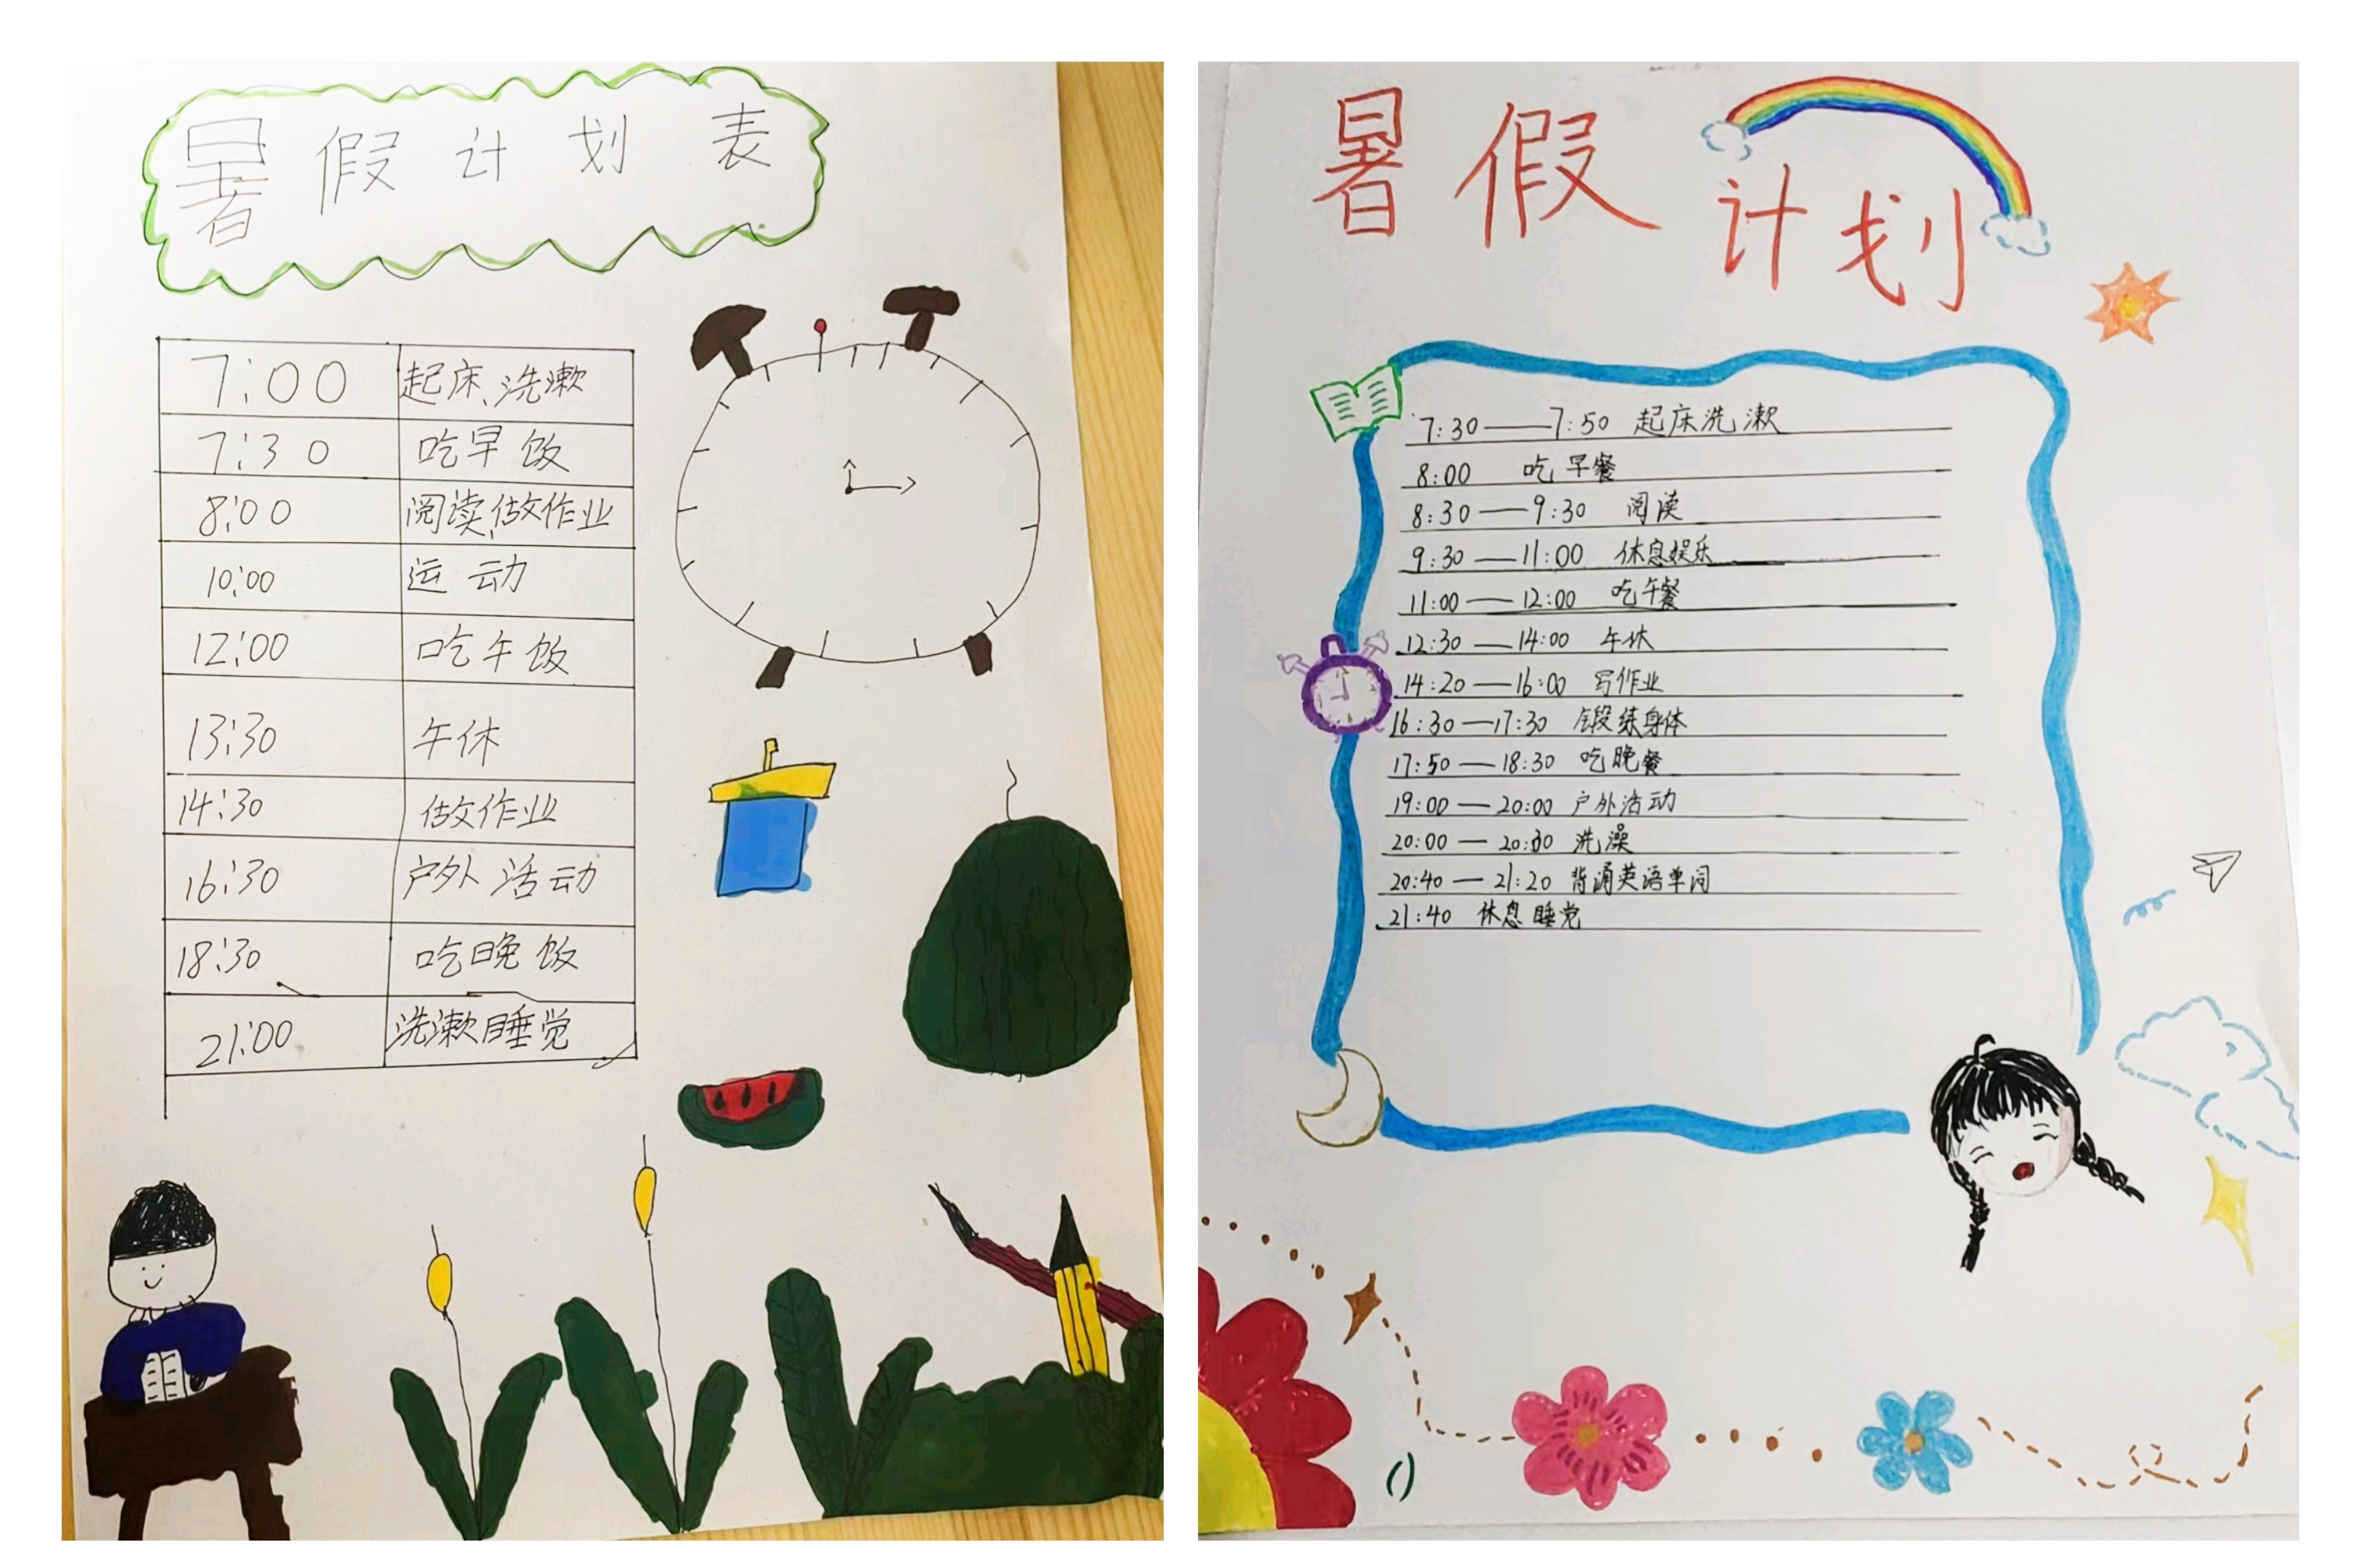 暑假计划表
7:00 起床、洗漱
7:30 吃早饭
8:00 阅读、做作业
10:00 运动
12:00 吃午饭
13:30 午休
14:30 做作业
16:30 户外活动
18:30 吃晚饭
21:00 洗漱睡觉
暑假
计划
7:30——7:50 起床洗漱
8:00 吃早餐
8:30——9:30 阅读
9:30——11:00 休息娱乐
11:00——12:00 吃午餐
12:30——14:00 午休
14:20——16:00 写作业
16:30——17:30 锻练身体
17:50——18:30 吃晚餐
19:00——20:00 户外活动
20:00——20:30 洗澡
20:40——21:20 背诵英语单词
21:40 休息睡觉